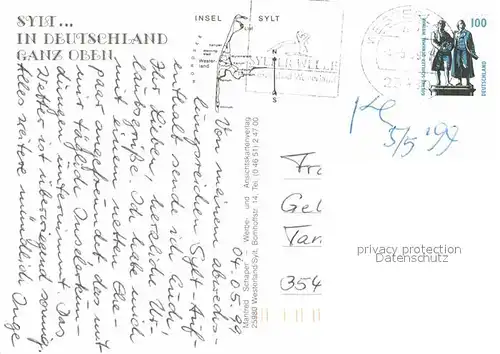 SYLT...
IN DEUTSCHLAND
GANZ OBEN.
INSEL SYLT
Wester-
land
N
S
SYLTER WELLE
100
GOETHE-SCHILLER-DENKMAL WEIMAR
DEUTSCHLAND
3/5 '99
04.05.99
Von meinem abwechs-
lungsreichen Sylt-Auf-
enthalt sende ich Euch,
Ihr Lieben, herzliche Ur-
laubsgrüße. Ich habe mich
mit einem netten Ehe-
paar angefreundet das mit
mir täglich Inselerkun-
dungen unternimmt. Das
Wetter ist überwiegend sonnig.
Alles weitere mündlich Inge
Manfred Schaper - Werbe- und Ansichtskartenverlag
25980 Westerland/Sylt, Bomhoffstr. 14, Tel. (0 46 51) 2 47 00
Fra
Gel
Tan
354
privacy protection
Datenschutz